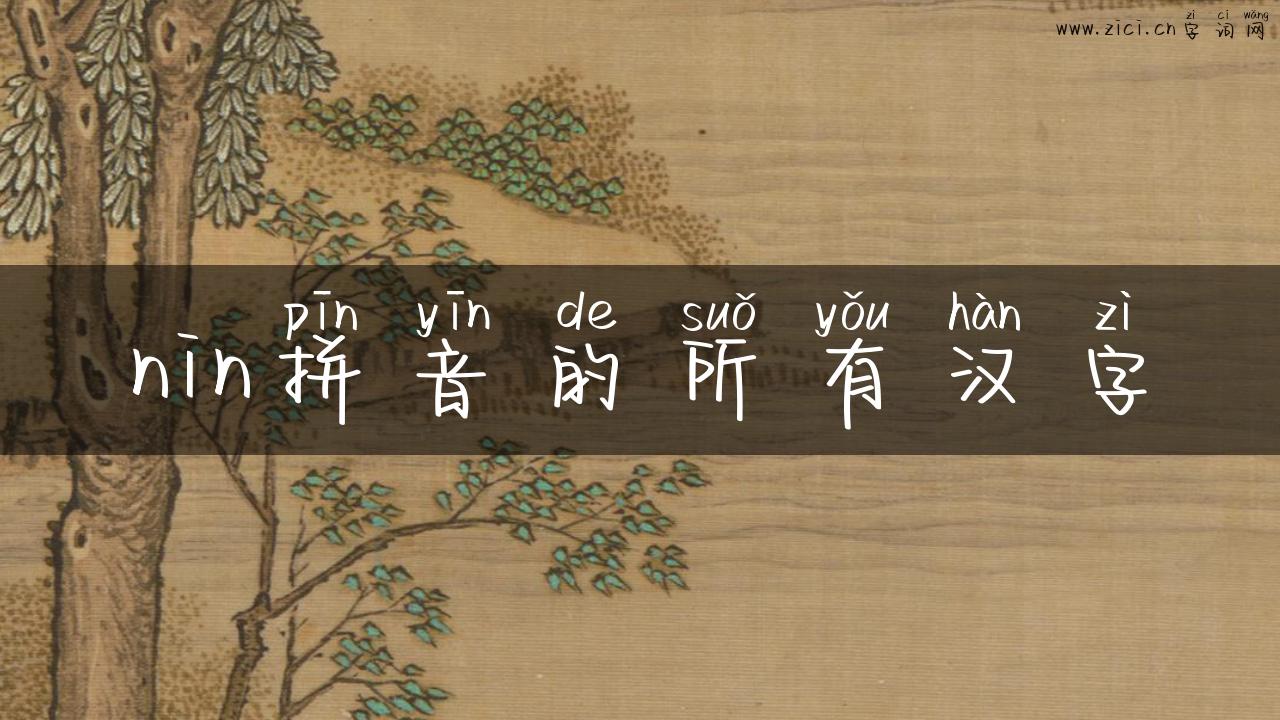 zì cí wǎng
www.zici.cn 字词网
pīn yīn de suǒ yǒu hàn zì
nin拼音的所有汉字